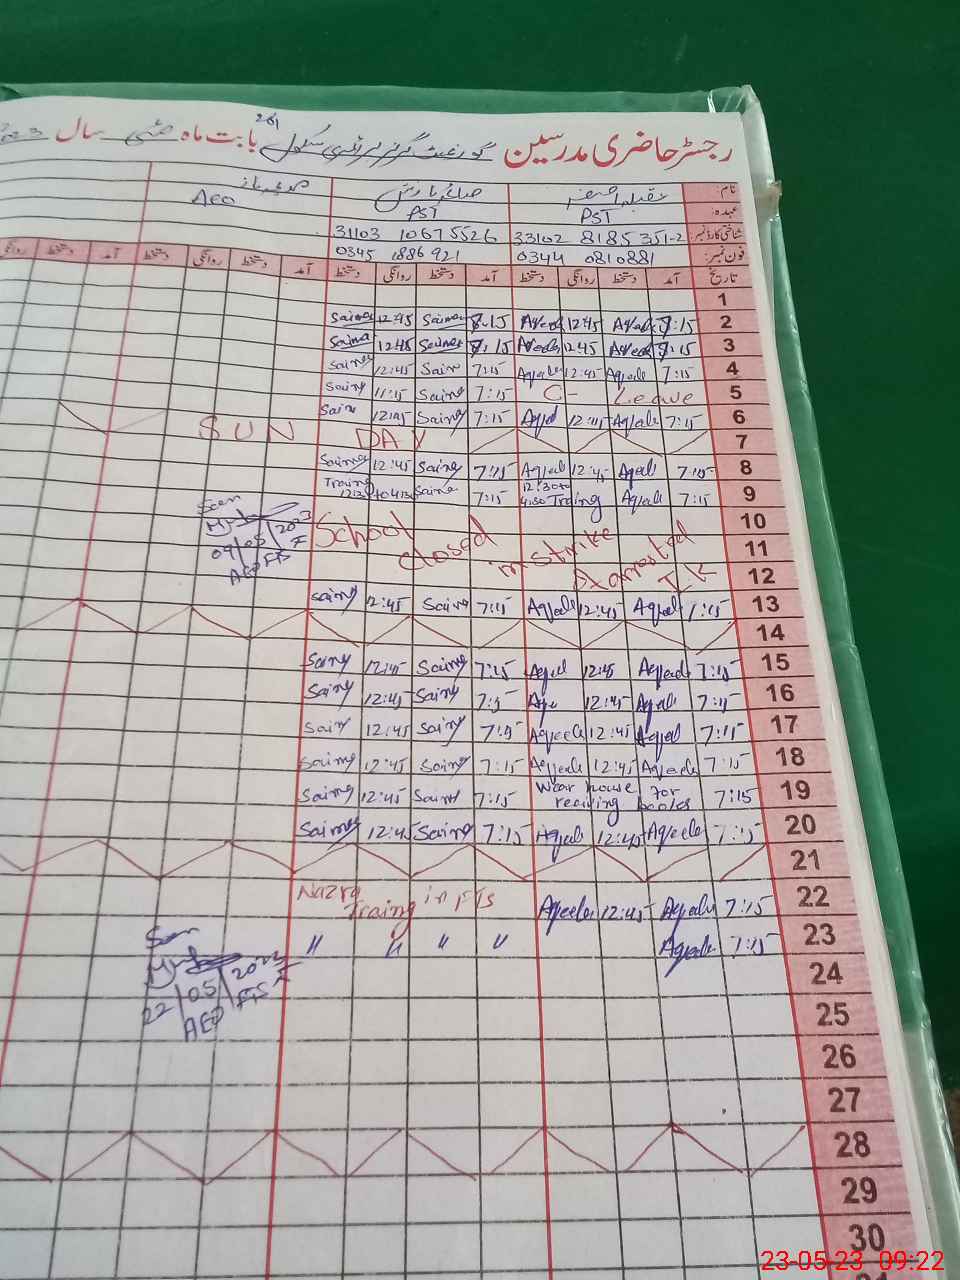 رجسٹر حاضری مدرسین گورنمنٹ گرلز پرائمری سکول بابت ماہ مئی سال
261
نام:
عہدہ: PST PST AEO
شناختی کارڈ نمبر: 33102 8185351-2 31103 10675526
فون نمبر: 0344 0810881 0345 1886921
تاریخ آمد دستخط روانگی دستخط آمد دستخط روانگی دستخط آمد دستخط روانگی دستخط آمد دستخط روانگی
1
Saima 12:45 Saima 7:15 Aqeela 12:45 Aqeela 7:15 2
Saima 12:45 Saima 7:15 Aqeela 12:45 Aqeela 7:15 3
Saima 12:45 Saim 7:15 Aqeela 12:45 Aqeela 7:15 4
Saima 11:15 Saima 7:15 C- Leave 5
Saim 12:45 Saima 7:15 Aqeel 12:45 Aqeela 7:15 6
SUN DAY 7
Saima 12:45 Saima 7:15 Aqeela 12:45 Aqeela 7:15 8
Traing Saima 7:15 12:30 to 4:30 Traing Aqeela 7:15 9
Seen
09/05/2023
AEO FTS F
School closed in strike 10
11
I.K 12
Saima 12:45 Saima 7:15 Aqeela 12:45 Aqeela 7:15 13
14
Saima 12:45 Saima 7:15 Aqeel 12:45 Aqeela 7:15 15
Saima 12:45 Saima 7:15 Aqe 12:45 Aqeela 7:15 16
Saima 12:45 Saima 7:15 Aqeela 12:45 Aqeel 7:15 17
Saima 12:45 Saima 7:15 Aqeela 12:45 Aqeela 7:15 18
Saima 12:45 Saima 7:15 Wear house reciving for books 7:15 19
Saima 12:45 Saima 7:15 Aqeela 12:45 Aqeela 7:15 20
21
Nazra Traing in FTS Aqeela 12:45 Aqeela 7:15 22
" " " " Aqeela 7:15 23
Seen
22/05/2023
AEO FTS F
24
25
26
27
28
29
30
23-05-23 09:22